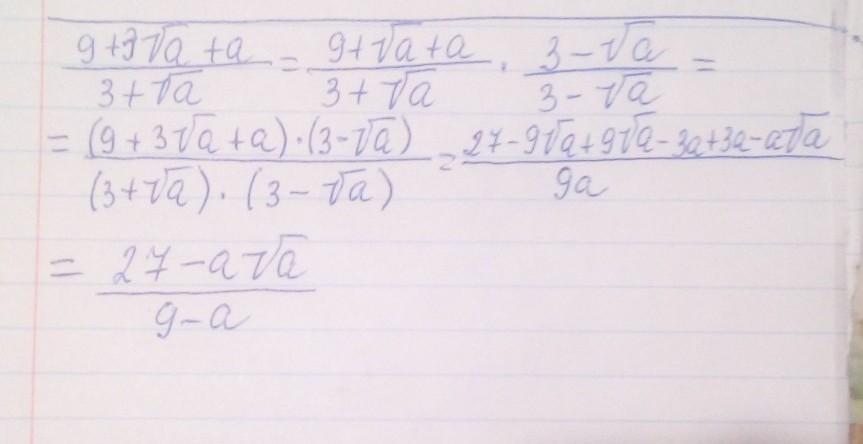 (9+3√a+a)/(3+√a) = (9+√a+a)/(3+√a) · (3-√a)/(3-√a) =
= ((9+3√a+a)·(3-√a))/((3+√a)·(3-√a)) = (27-9√a+9√a-3a+3a-a√a)/(9a)
= (27-a√a)/(9-a)